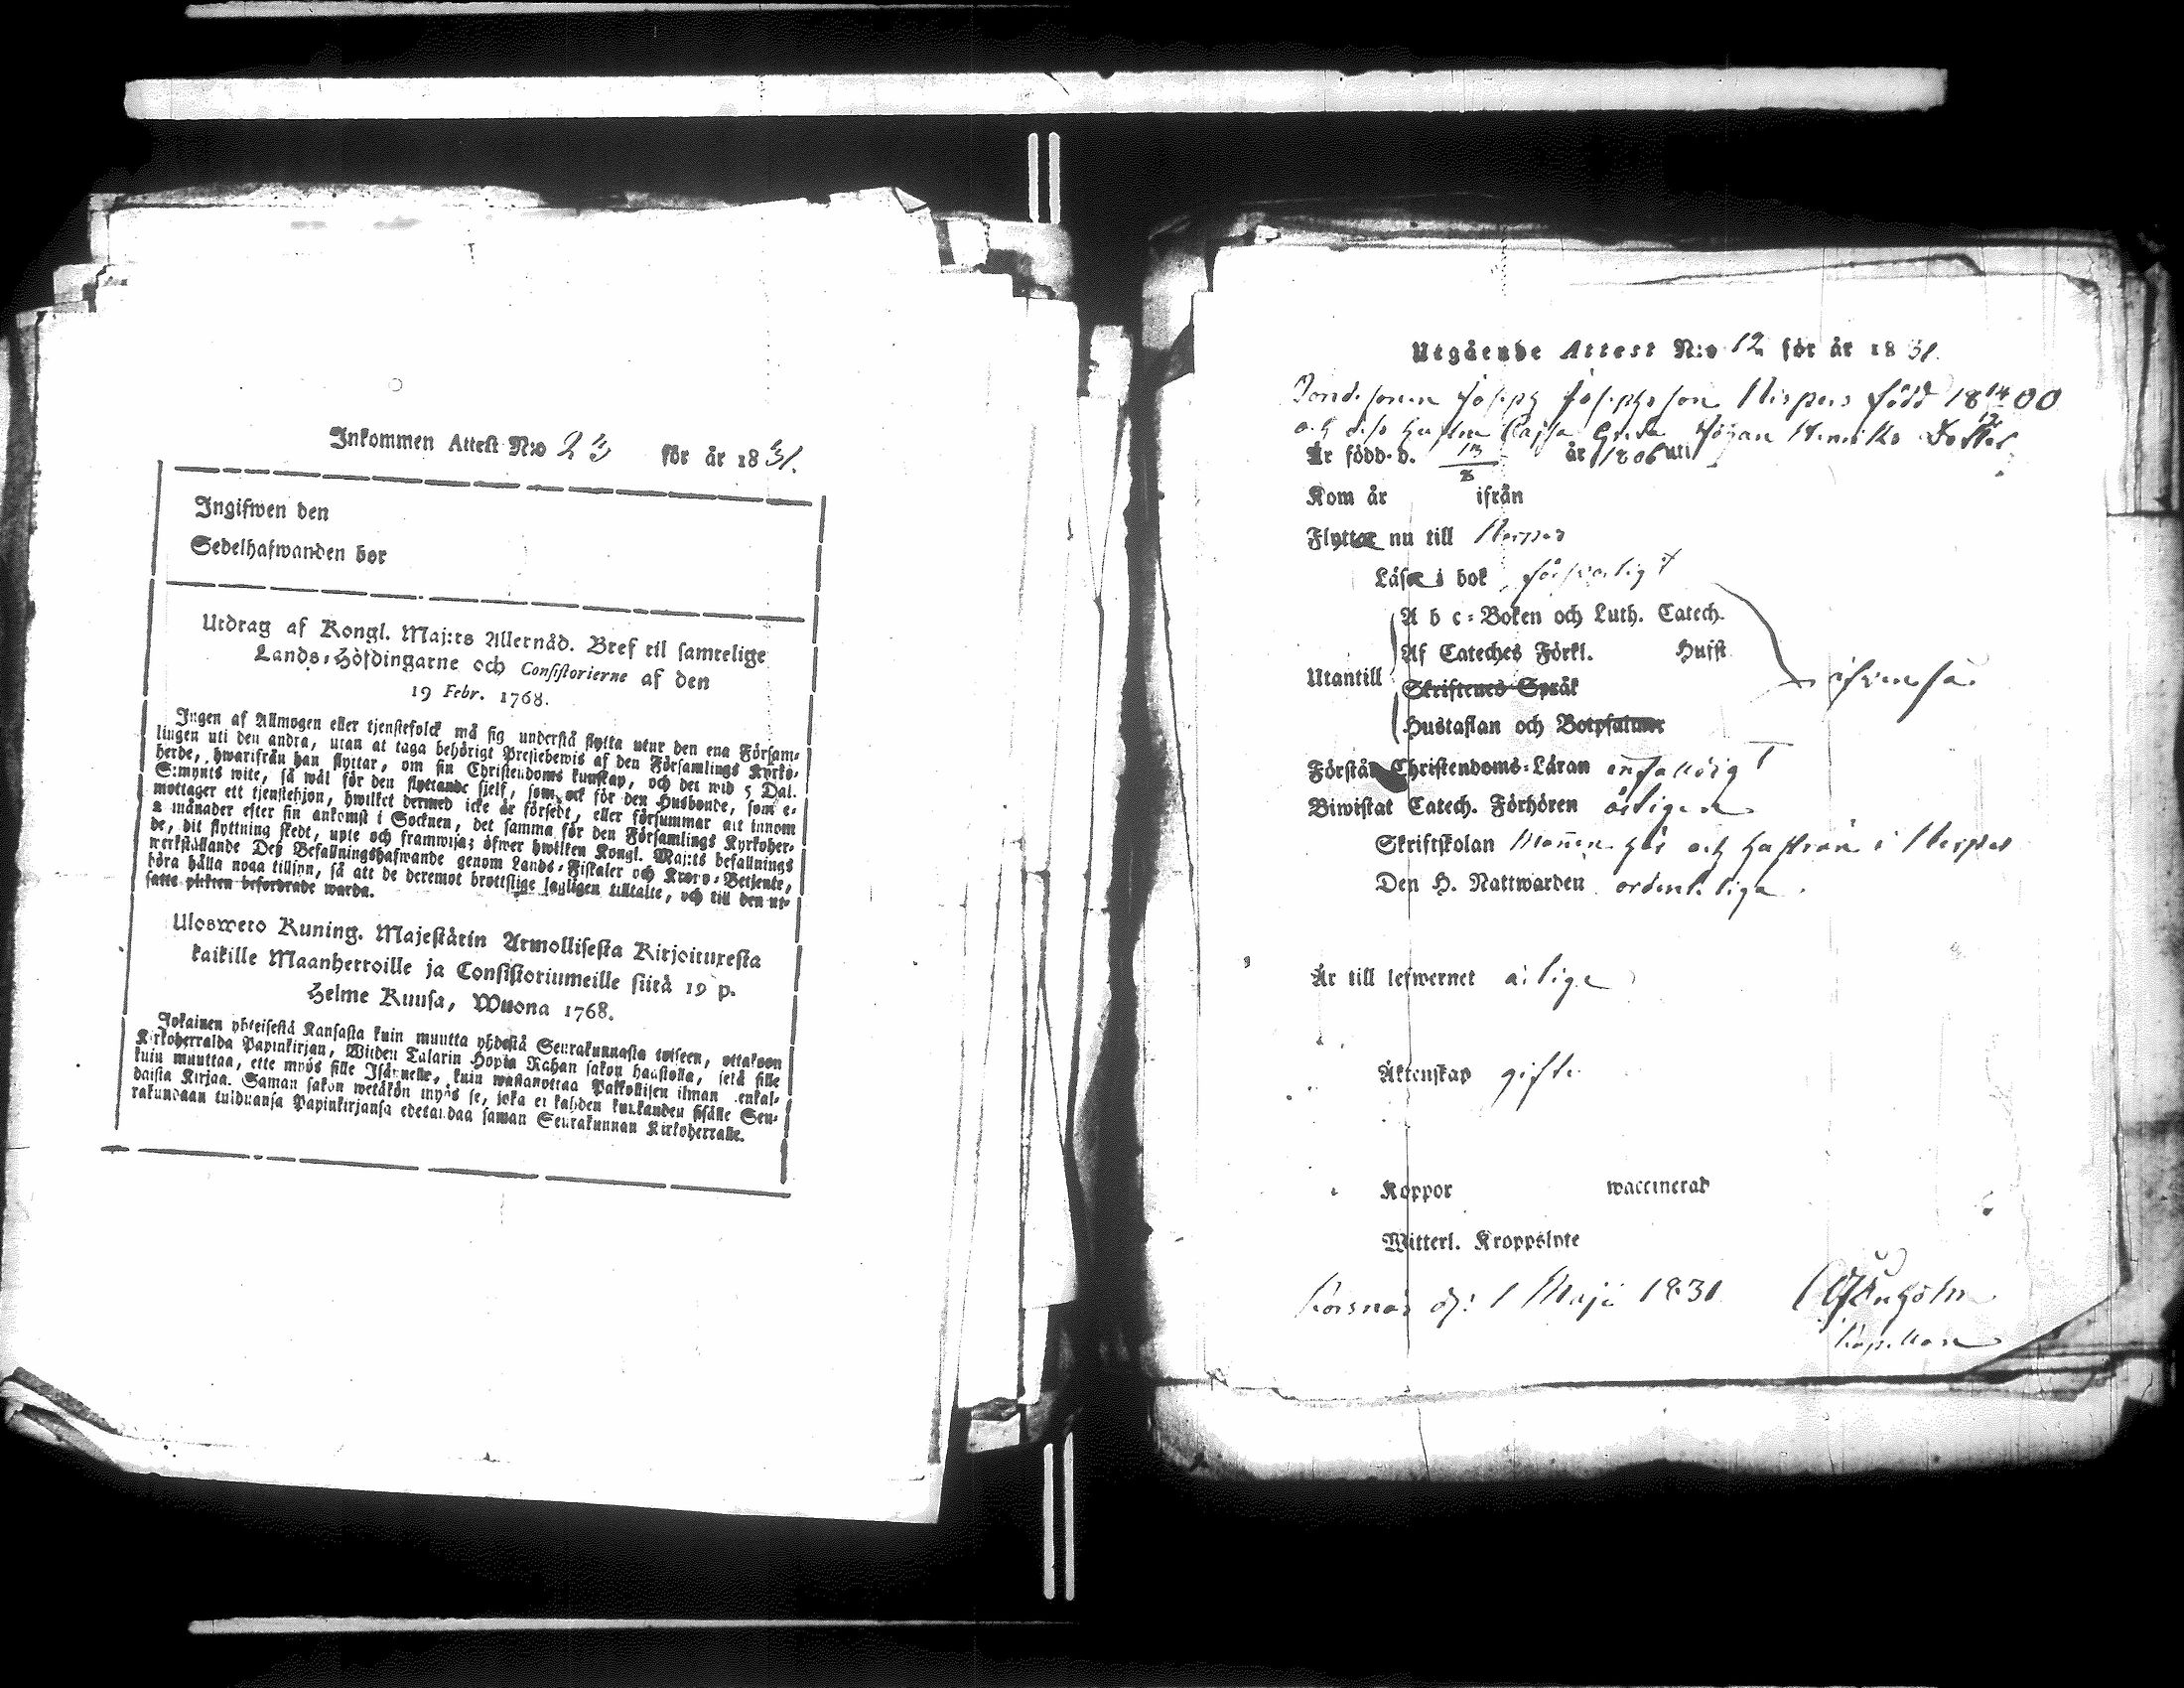 Inkommen Attest N:o 23 för år 1831.
Ingifwen den
Sedelhafwanden bor
Utdrag af Kongl. Maj:ts Allernåd. Bref til samtelige
Lands-Höfdingarne och Consistorierne af den
19 Febr. 1768.
Ingen af Allmogen eller tjenstefolck må sig understå flytta utur den ena Församlingen
lingen uti den andra, utan at taga behörigt Prestebewis af den Församlings Kyrko-
herde, hwarifrån han flyttar, om sin Christendoms kunskap, och det wid 5 Dal.
S:mynts wite, så wäl för den flyttande sjelf, som ock för den Husbonde, som e-
mottager ett tjenstehjon, hwilket dermed icke är försedt, eller försummar att innom
2 månader efter sin ankomst i Socknen, det samma för den Församlings Kyrkoher-
de, dit flyttning skedt, upte och framwisa; öfwer hwilken Kongl. Maj:ts befallnings
werkställande Deß Befallningshafwande genom Lands-Fiskaler och Krono-Betjente,
böra hålla noga tillsyn, så att de deremot brottslige lagligen tilltalte, och till den ut-
satte plikten befordrade warda.
Ulosweto Kuning. Majestätin Armollisesta Kirjoituxesta
kaikille Maanherroille ja Consistoriumeille siitä 19 p.
Helme Kuusa, Wuona 1768.
Jokainen yhteisestä Kansasta kuin muutta yhdestä Seurakunnasta toiseen, ottakoon
Kirkoherralda Papinkirjan, Wiiden Talarin Hopia Rahan sakon haastolla, sekä sille
kuin muuttaa, ette myös sille Isännelle, kuin wastanottaa Palkollisen ilman senkal-
daista Kirjaa. Saman sakon wetäkön myös se, joka ei kahden kuukauden sisälle Seu-
rakundaan tulduansa Papinkirjansa edetandaa saman Seurakunnan Kirkoherralle.
Utgående Attest N:o 12 för år 1831.
Bondesonen Joseph Josephsson Nerpes född 18 14/12 00
och dess hustru Cajsa Greta Johan Henriks Dotter
Är född d. 13/8 år 1806 uti
Kom år ifrån
Flyttar nu till Nerpes
Läsa i bok försvarligt
A b c-Boken och Luth. Catech.
Af Cateches Förkl. Husst
Utantill
Skriftenes Språk
Hustaflan och Botpsalmer
äfvenså
Förstår Christendoms-Läran enfaldigt
Biwistat Catech. Förhören årligen
Skriftskolan Mannen här och hustrun i Nerpes
Den H. Nattwarden ordentliga
Är till lefwernet ärliga
Äktenskap gifte
Koppor waccinerad
Witterl. Kroppslyte
Korsnäs d: 1 Maji 1831
Kapellan